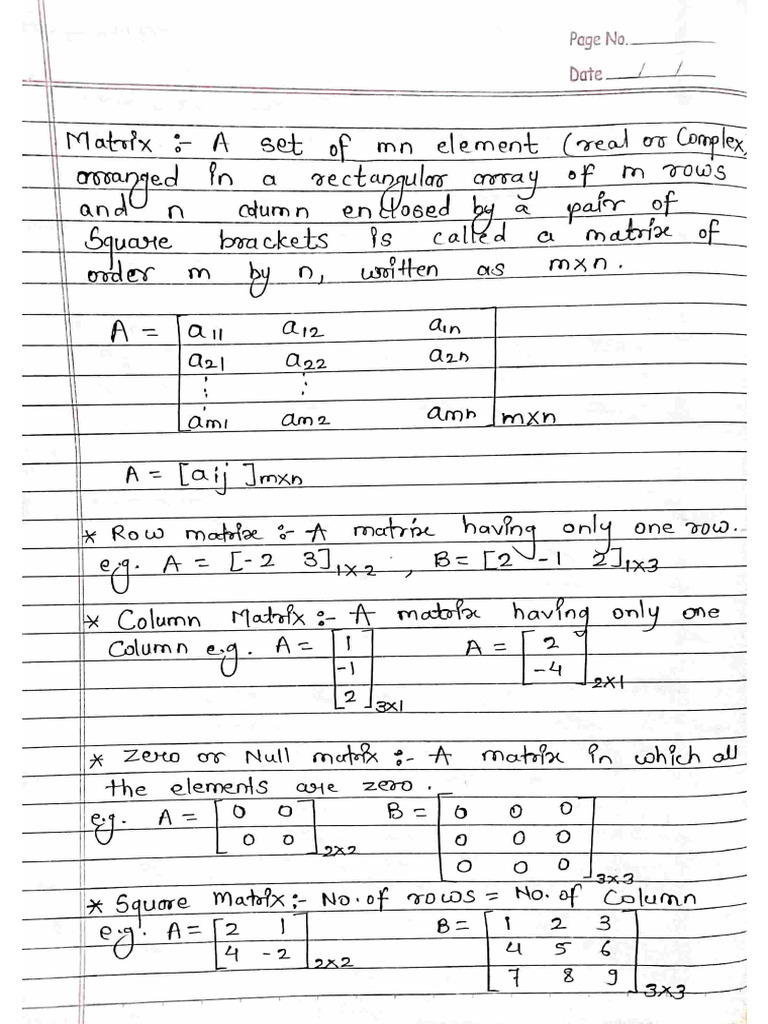 Page No.
Date / /
Matrix :- A set of mn element (real or Complex,
arranged in a rectangular array of m rows
and n column enclosed by a pair of
Square brackets is called a matrix of
order m by n, written as m×n.
A = [a11 a12 a1n
a21 a22 a2n
⋮ ⋮
am1 am2 amn] m×n
A = [aij]m×n
* Row matrix :- A matrix having only one row.
e.g. A = [-2 3]1×2 , B = [2 -1 2]1×3
* Column Matrix :- A matrix having only one
Column e.g. A = [1 -1 2]3×1 A = [2 -4]2×1
* Zero or Null matrix :- A matrix in which all
the elements are zero.
e.g. A = [0 0 B = [0 0 0
0 0]2×2 0 0 0
0 0 0]3×3
* Square Matrix :- No. of rows = No. of Column
e.g. A = [2 1 B = [1 2 3
4 -2]2×2 4 5 6
7 8 9]3×3